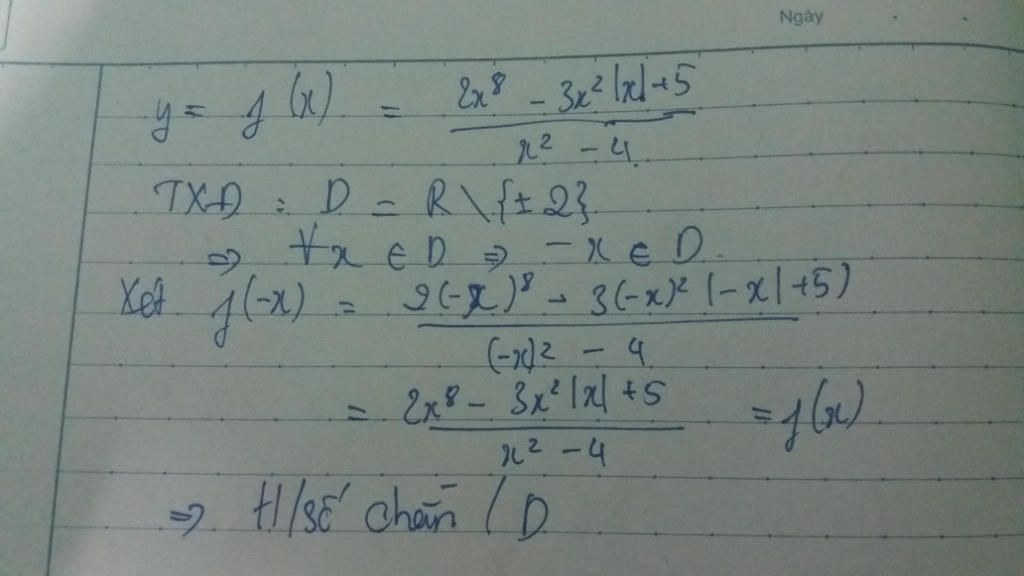 Ngày
y = f(x) = (2x⁸ - 3x²|x| + 5) / (x² - 4)
TXĐ : D = R \ {± 2}
⇒ ∀x ∈ D ⇒ -x ∈ D.
Xét f(-x) = (2(-x)⁸ - 3(-x)² |-x| + 5)) / ((-x)² - 4)
= (2x⁸ - 3x²|x| + 5) / (x² - 4) = f(x)
⇒ H/số chẵn / D